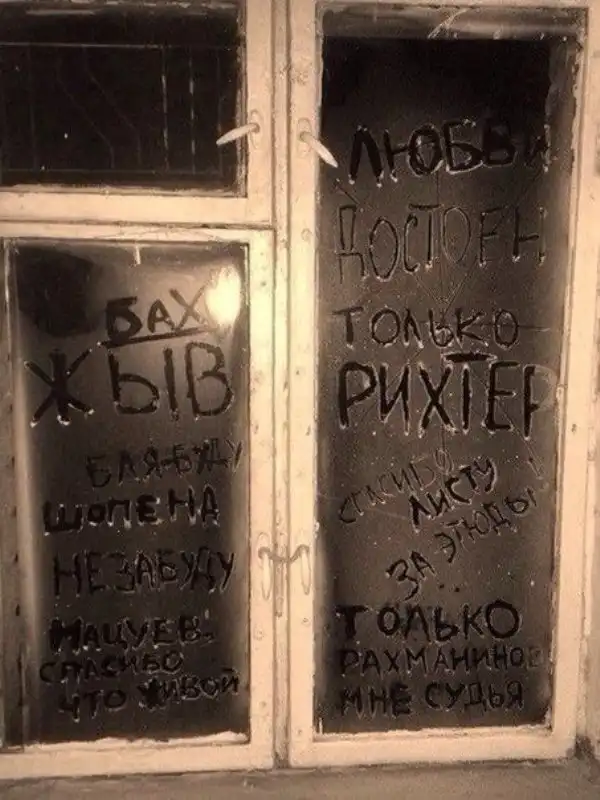 БАХ
ЖЫВ
БЛЯ БУДУ
ШОПЕНА
НЕ ЗАБУДУ
МАЦУЕВ.
СПАСИБО
ЧТО ЖИВОЙ
ЛЮБВИ
ДОСТОЕН
ТОЛЬКО
РИХТЕР
СПАСИБО
ЛИСТУ
ЗА ЭТЮДЫ!
ТОЛЬКО
РАХМАНИНОВ
МНЕ СУДЬЯ